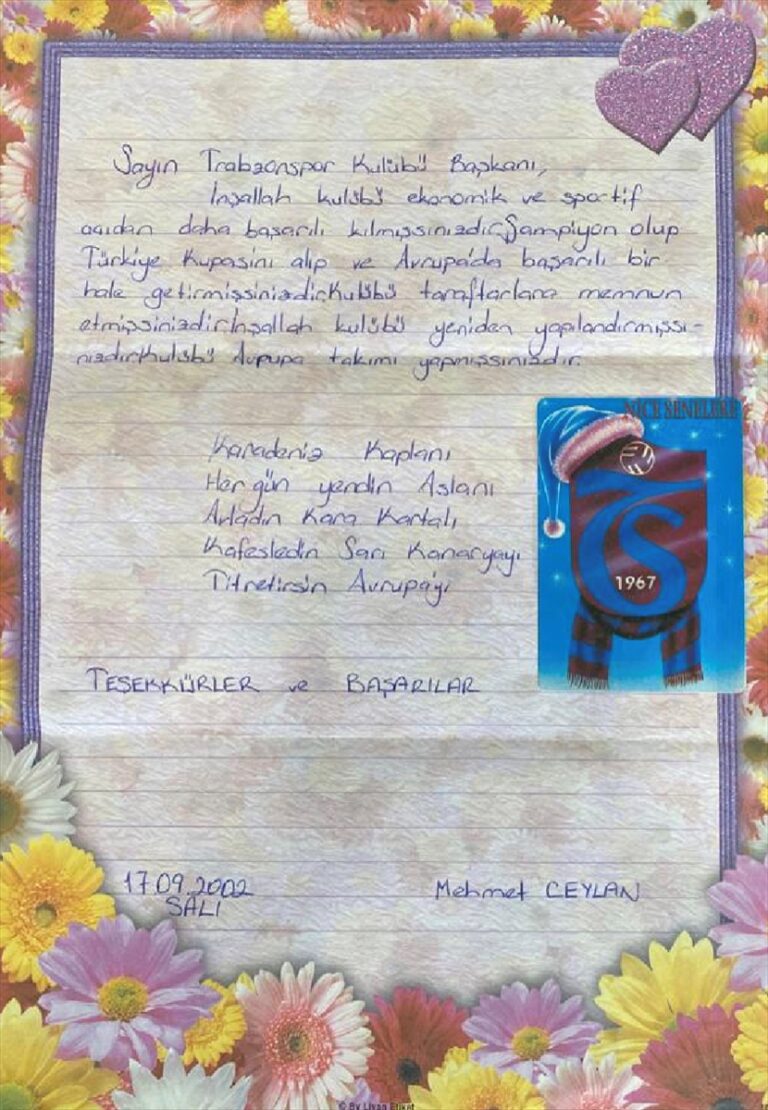 Sayın Trabzonspor Kulübü Başkanı,
İnşallah kulübü ekonomik ve sportif
açıdan daha başarılı kılmışsınızdır.Şampiyon olup
Türkiye Kupasını alıp ve Avrupa'da başarılı bir
hale getirmişsinizdir.Kulübü taraftarlara memnun
etmişsinizdir.İnşallah kulübü yeniden yapılandırmışsı-
nızdır.Kulübü Avrupa takımı yapmışsınızdır.
NİCE SENELERE
Karadeniz Kaplanı
Her gün yendin Aslanı
Avladın Kara Kartalı
Kafesledin Sarı Kanaryayı
Titretirsin Avrupa'yı
TS
1967
TEŞEKKÜRLER ve BAŞARILAR
17.09.2002
SALI
Mehmet CEYLAN
© By Liyan Etiket